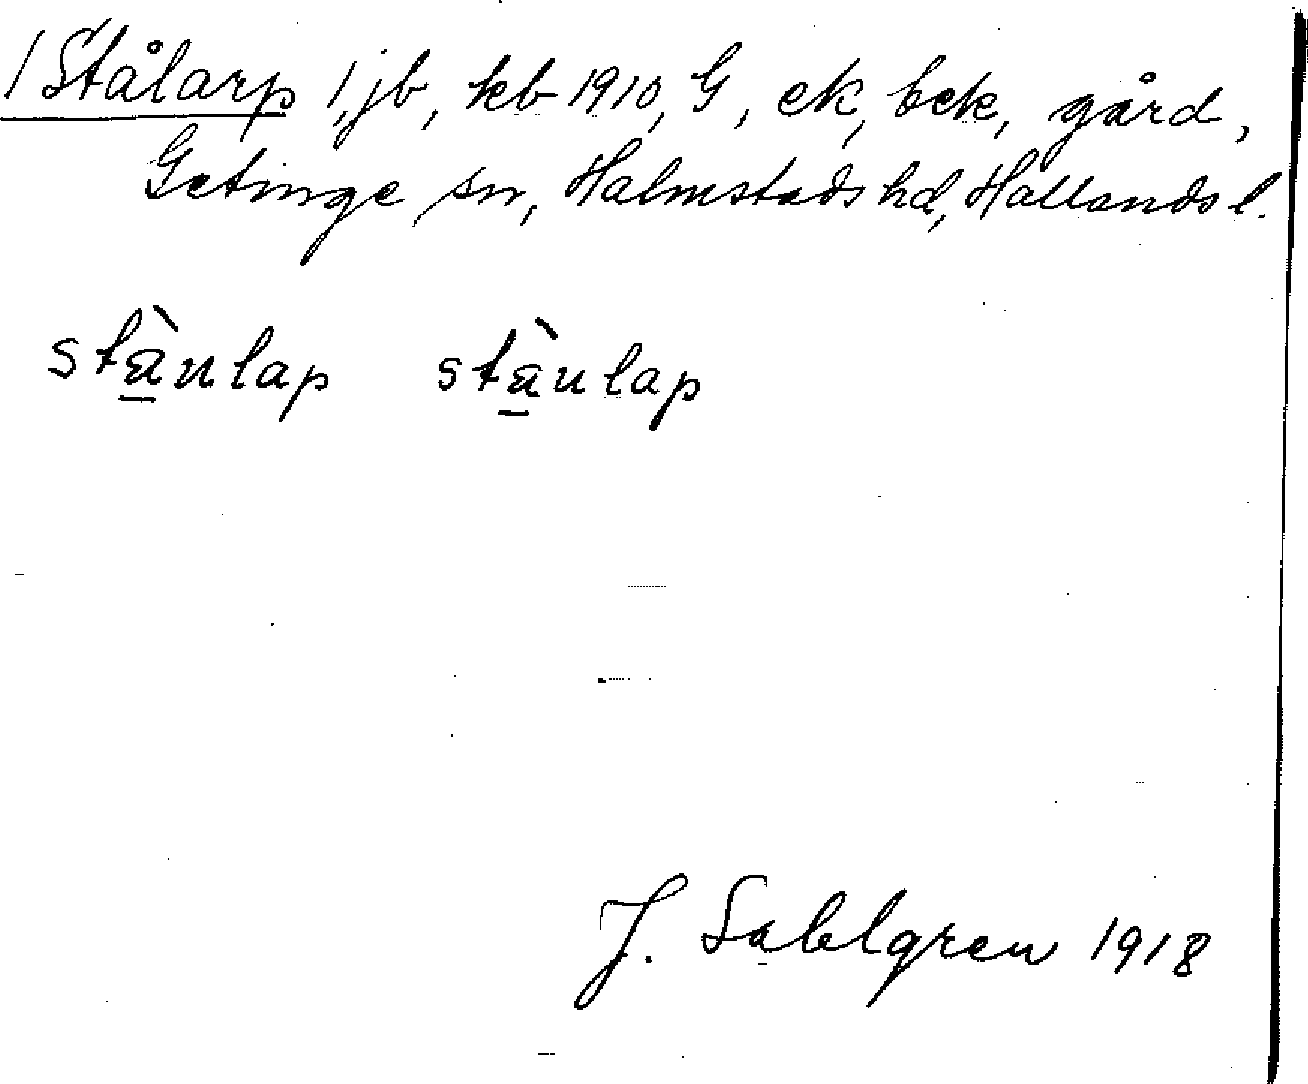 / Stålarp /, jb, kb 1910, G, ek, bek, gård,
Getinge sn, Halmstads hd, Hallands l.
stå̱̀ulap stà̱ulap
J. Sahlgren 1918